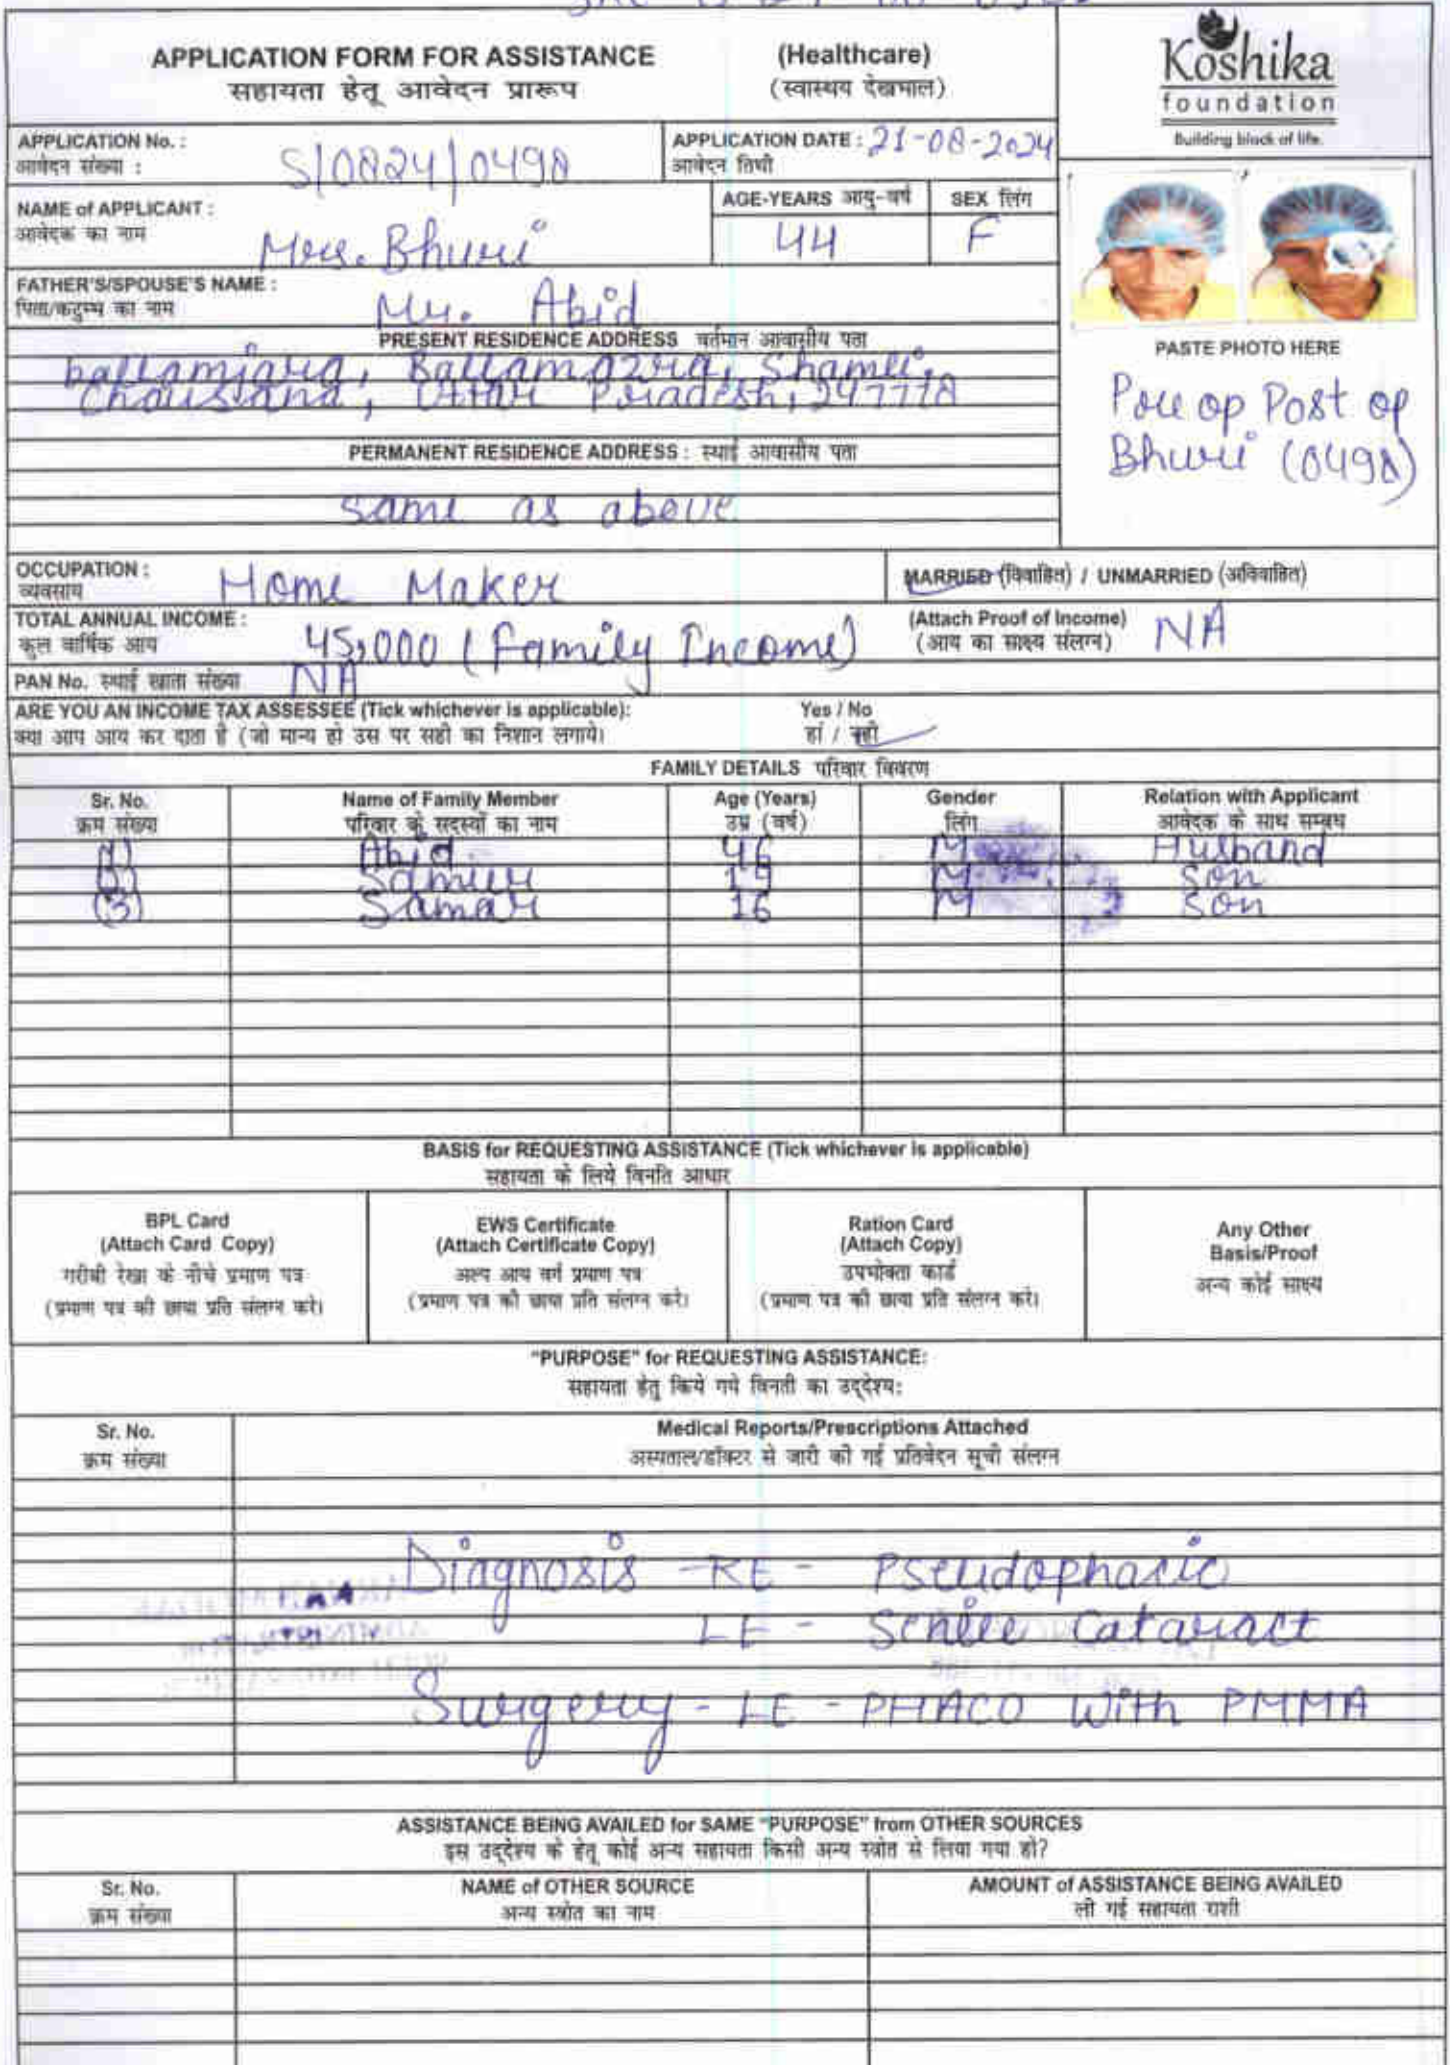 APPLICATION FORM FOR ASSISTANCE (Healthcare)
सहायता हेतू आवेदन प्रारूप (स्वास्थय देखभाल)
Koshika
foundation
Building block of life.
APPLICATION No. : S/0824/0498
आवेदन संख्या :
APPLICATION DATE : 21-08-2024
आवेदन तिथी
NAME of APPLICANT : Mrs. Bhuri
आवेदक का नाम
AGE-YEARS आयु-वर्ष 44
SEX लिंग F
FATHER'S/SPOUSE'S NAME : Mr. Abid
पिता/कटुम्ब का नाम
PRESENT RESIDENCE ADDRESS वर्तमान आवासीय पता
Shamli,
Chousana, Uttar Pradesh, 247778
PERMANENT RESIDENCE ADDRESS : स्थाई आवासीय पता
same as above
PASTE PHOTO HERE
Pre op Post op
Bhuri (0498)
OCCUPATION : Home Maker
व्यवसाय
MARRIED (विवाहित) / UNMARRIED (अविवाहित)
TOTAL ANNUAL INCOME : 45,000 (Family Income)
कुल वार्षिक आय
(Attach Proof of Income) NA
(आय का साक्ष्य संलग्न)
PAN No. स्थाई खाता संख्या NA
ARE YOU AN INCOME TAX ASSESSEE (Tick whichever is applicable): Yes / No
क्या आप आय कर दाता है (जो मान्य हो उस पर सही का निशान लगाये। हां / नही
FAMILY DETAILS परिवार विवरण
Sr. No. Name of Family Member Age (Years) Gender Relation with Applicant
क्रम संख्या परिवार के सदस्यों का नाम उम्र (वर्ष) लिंग आवेदक के साथ सम्बंध
(1) Abid 46 M Husband
(2) Samir 19 M Son
(3) Samar 16 M Son
BASIS for REQUESTING ASSISTANCE (Tick whichever is applicable)
सहायता के लिये विनति आधार
BPL Card
(Attach Card Copy)
गरीबी रेखा के नीचे प्रमाण पत्र
(प्रमाण पत्र की छाया प्रति संलग्न करे।
EWS Certificate
(Attach Certificate Copy)
अल्प आय वर्ग प्रमाण पत्र
(प्रमाण पत्र की छाया प्रति संलग्न करे।
Ration Card
(Attach Copy)
उपभोक्ता कार्ड
(प्रमाण पत्र की छाया प्रति संलग्न करे।
Any Other
Basis/Proof
अन्य कोई साक्ष्य
"PURPOSE" for REQUESTING ASSISTANCE:
सहायता हेतु किये गये विनती का उद्देश्य:
Sr. No. Medical Reports/Prescriptions Attached
क्रम संख्या अस्पताल/डॉक्टर से जारी की गई प्रतिवेदन सूची संलग्न
Diagnosis - RE - Pseudophacic
LE - Senile Cataract
Surgery - LE - PHACO With PMMA
ASSISTANCE BEING AVAILED for SAME "PURPOSE" from OTHER SOURCES
इस उद्देश्य के हेतू कोई अन्य सहायता किसी अन्य स्त्रोत से लिया गया हो?
Sr. No. NAME of OTHER SOURCE AMOUNT of ASSISTANCE BEING AVAILED
क्रम संख्या अन्य स्त्रोत का नाम ली गई सहायता राशी